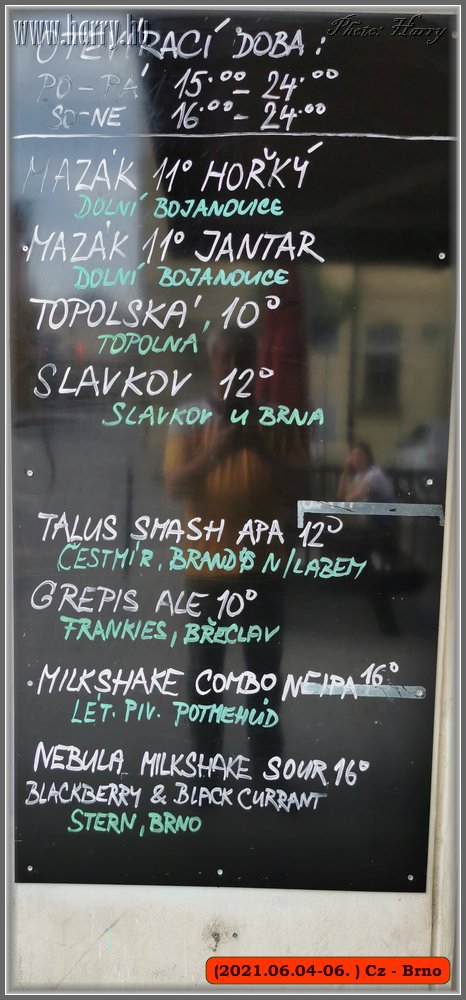 www.harry.hu
Photo: Harry
OTEVÍRACÍ DOBA:
PO-PÁ 15.00-24.00
SO-NE 16.00-24.00
MAZÁK 11° HOŘKÝ
DOLNÍ BOJANOVICE
MAZÁK 11° JANTAR
DOLNÍ BOJANOVICE
TOPOLSKÁ 10°
TOPOLNÁ
SLAVKOV 12°
SLAVKOV U BRNA
TALUS SMASH APA 12°
ČESTMÍR, BRANDÝS N/LABEM
GREPIS ALE 10°
FRANKIES, BŘECLAV
MILKSHAKE COMBO NEIPA 16°
LET. PIV. POTMEHUD
NEBULA MILKSHAKE SOUR 16°
BLACKBERRY & BLACKCURRANT
STERN, BRNO
(2021.06.04-06. ) Cz - Brno